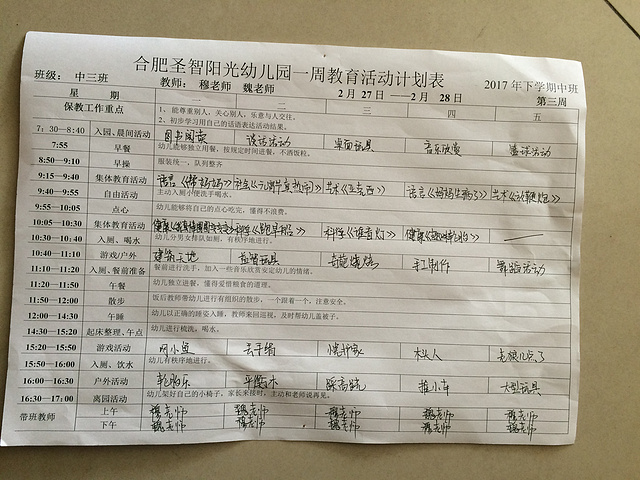 合肥圣智阳光幼儿园一周教育活动计划表
班级: 中三班 教师: 穆老师 魏老师 2月27日——2月28日 2017年下学期中班
星期 一 二 三 四 五 第三周
保教工作重点 1、能尊重别人,关心别人,乐意与人交往。
2、初步学习用自己的话语表达活动结果。
7:30—8:40 入园、晨间活动 图书阅读 谈话活动 桌面玩具 音乐欣赏 篮球活动
7:55 早餐 幼儿能够独立用餐,按规定时间进餐,不洒饭粒。
8:50—9:10 早操 服装统一,队列整齐
9:15—9:40 集体教育活动 语言 社会 艺术 语言 艺术
9:40—9:55 自由活动 主动入厕小便洗手喝水。
9:55—10:05 点心 幼儿能够将自己的点心吃完,懂得不浪费。
10:05—10:30 集体教育活动 健康 科学 科学《谁音灯》 健康
10:30—10:40 入厕、喝水 幼儿分男女排队如厕,有秩序地进行。
10:40—11:10 游戏/户外 建筑天地 益智玩具 手工制作 舞蹈活动
11:10—11:20 入厕、餐前准备 餐前进行洗手,加入一些音乐欣赏安定幼儿的情绪。
11:20—11:50 午餐 幼儿独立进餐,懂得爱惜粮食的道理。
11:50—12:00 散步 饭后教师带幼儿进行有组织的散步,一个跟着一个,注意安全。
12:00—14:30 午睡 幼儿以正确的睡姿入睡,教师来回巡视,及时帮幼儿盖被子。
14:30—15:20 起床整理、午点 幼儿进行梳洗,喝水。
15:20—15:50 游戏活动 网小鱼 木头人 老狼几点了
15:50—16:00 入厕、饮水 幼儿有秩序地进行。
16:00—16:30 户外活动 平衡木 踩高跷 推小车 大型玩具
16:30—17:00 离园活动 幼儿架好自己的小椅子,家长来接时,主动和老师说再见。
带班教师 上午 穆老师 魏老师 穆老师 魏老师 穆老师
下午 魏老师 穆老师 魏老师 穆老师 魏老师